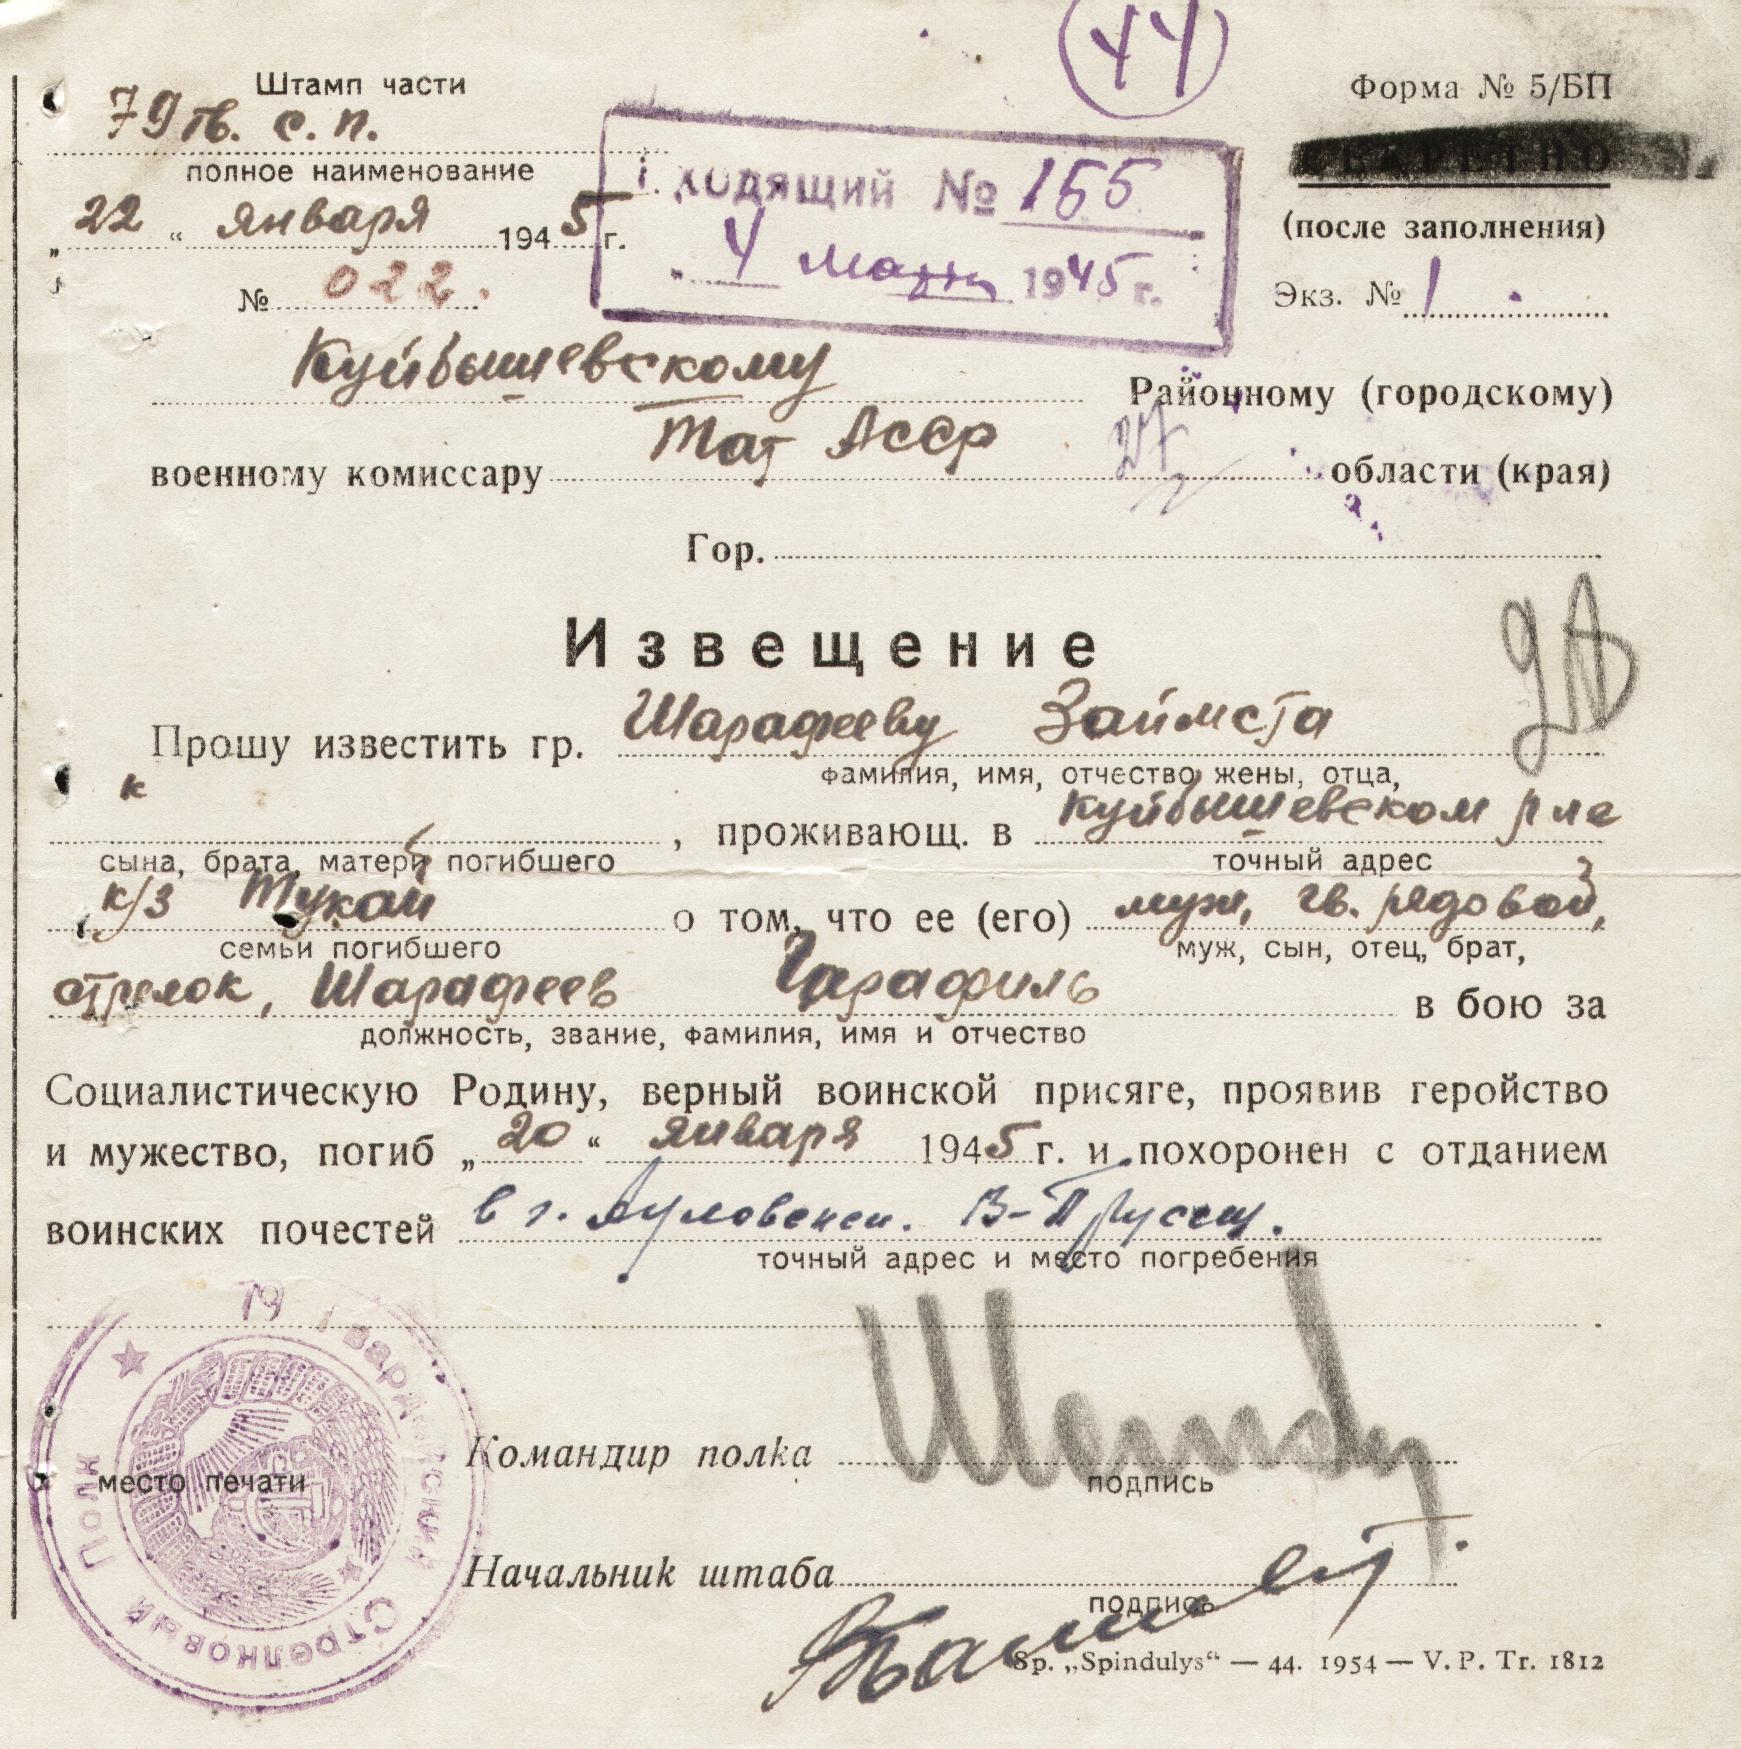 44
Штамп части
79 гв. с. п.
полное наименование
„22“ января 1945 г.
№ 022.
ходящий № 155
„4 марта 1945 г.
Форма № 5/БП
СЕКРЕТНО
(после заполнения)
Экз. № 1
Куйбышевскому Районному (городскому)
военному комиссару Тат АССР области (края)
27
Гор.
Извещение
Прошу известить гр. Шарафееву Займста
фамилия, имя, отчество жены, отца,
к
, проживающ. в Куйбышевском р не
сына, брата, матери погибшего точный адрес
к/з Тукай о том, что ее (его) муж, гв. рядовой,
семьи погибшего муж, сын, отец, брат,
стрелок, Шарафеев Гарафиль в бою за
должность, звание, фамилия, имя и отчество
Социалистическую Родину, верный воинской присяге, проявив геройство
и мужество, погиб „20“ января 1945 г. и похоронен с отданием
воинских почестей в г. Ауловенен. В-Пруссии.
точный адрес и место погребения
79 Гвардейский Стрелковый Полк
место печати
Командир полка
подпись
Начальник штаба
подпись
Sp. „Spindulys“ — 44. 1954 — V. P. Tr. 1812